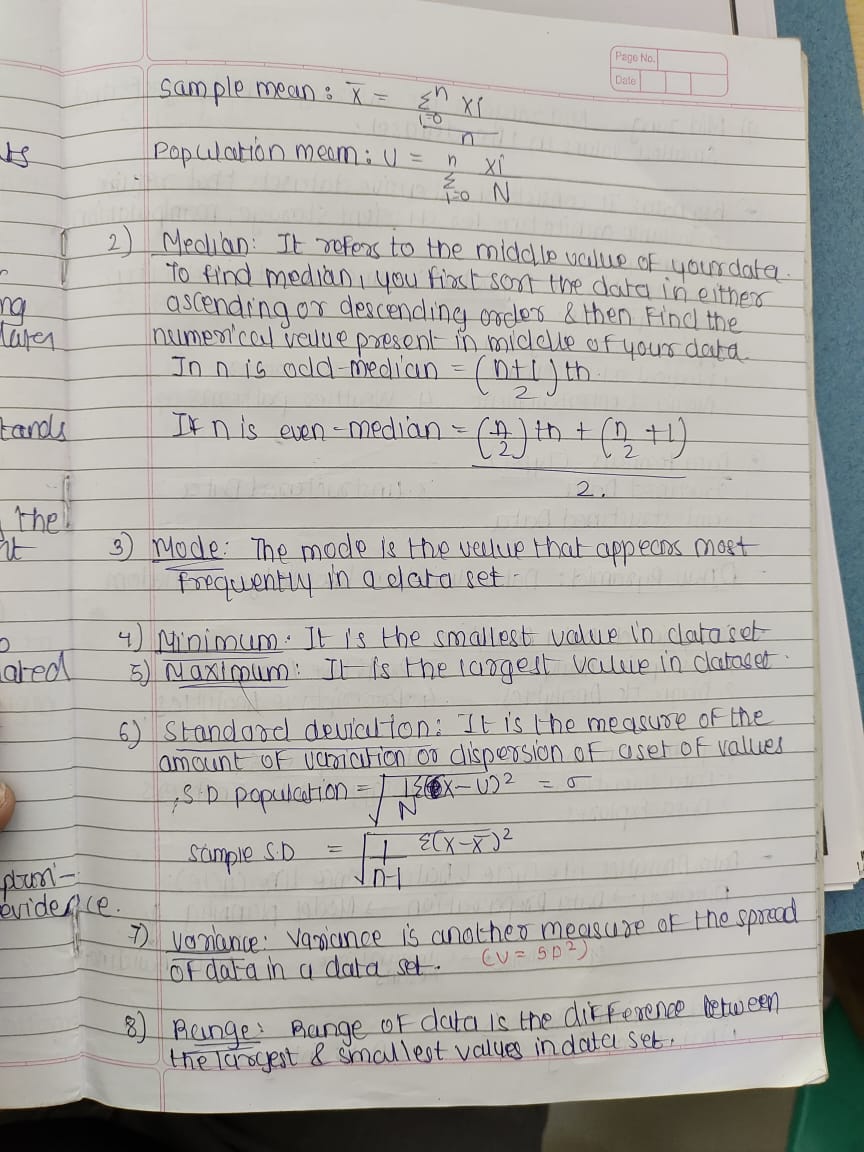 Page No.
Date
Sample mean: x̄ = Σ i=0 n xi / n
Population meam: U = n Σ i=0 xi / N
ts
2) Median: It refers to the middle value of your data.
To find median, you first sort the data in either
ng ascending or descending order & then Find the
later numerical value present in middle of your data.
In n is odd - median = (n+1 / 2) th
tands If n is even - median = (n/2) th + (n/2 + 1)
2.
the
3) Mode: The mode is the value that appears most
frequently in a data set.
4) Minimum: It is the smallest value in data set
ated 5) Maximum: It is the largest value in dataset.
6) Standard deviation: It is the measure of the
amount of variation or dispersion of a set of values
S.D population = √ 1/N Σ(x-U)² = σ
Sample S.D = √ 1/n-1 Σ(x-x̄)²
evidence.
7) Variance: Variance is another measure of the spread
of data in a data set. (V = SD²)
8) Range: Range of data is the difference between
the largest & smallest values in data set.